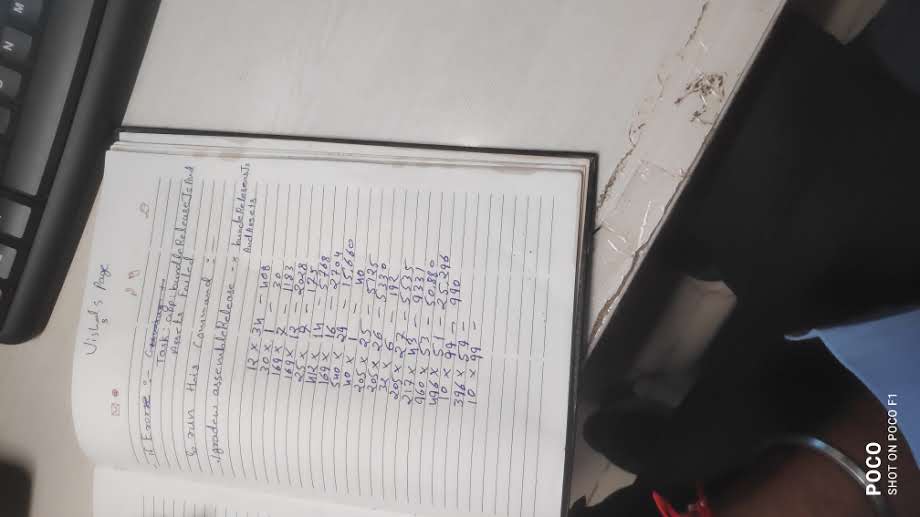 Vishal's Page
if Error :-
Task: app: bundleReleaseJsAnd
Assets Failed
& run this Command :
./gradlew assembleRelease -x bundleReleaseJs
AndAssets
12 × 34 - 408
30 × 1 - 30
169 × 7 - 1183
169 × 12 - 2028
25 × 7 - 175
412 × 14 - 5768
169 × 16 - 2704
540 × 29 - 15,660
40 × 1 - 40
205 × 25 - 5125
205 × 26 - 5330
32 × 6 - 192
205 × 27 - 5535
217 × 43 - 9331
960 × 53 - 50,880
496 × 51 - 25,296
10 × 99 - 990
396 × 59 -
10 × 99 -
POCO
SHOT ON POCO F1